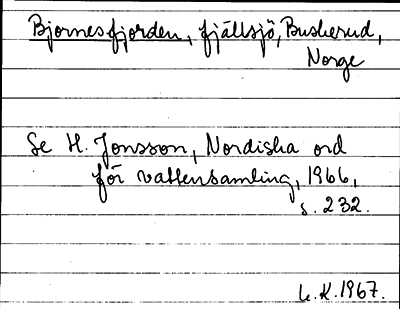 Bjornesfjorden, fjällsjö, Buskerud,
Norge
Se H. Jonsson, Nordiska ord
för vattensamling, 1966,
s. 232.
L. K. 1967.